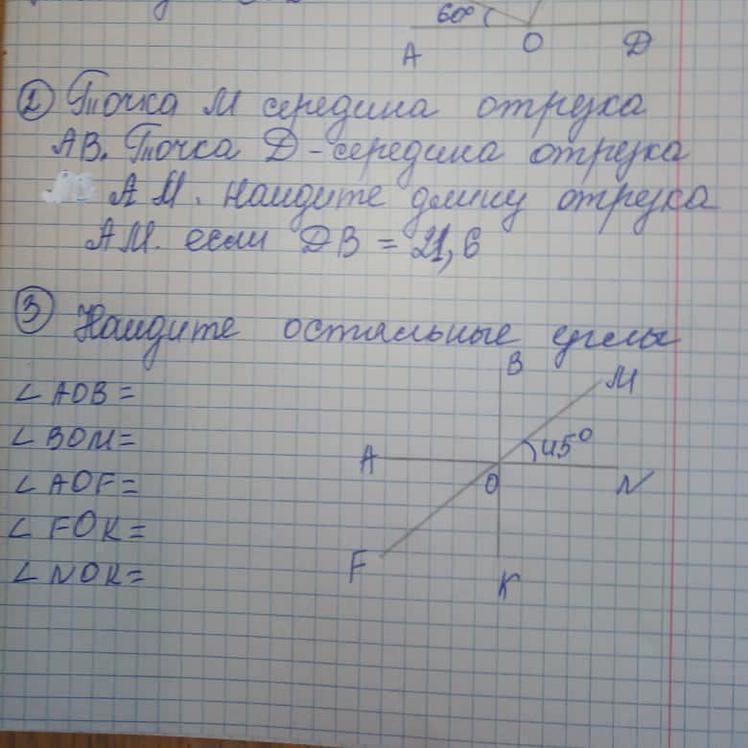 60°
А О Д
② Точка М середина отрезка
АВ. Точка Д - середина отрезка
АМ. найдите длину отрезка
АМ. если ДВ = 21,6
③ Найдите остальные углы
∠АОВ=
∠ВОМ=
∠АОF=
∠FОК=
∠NОК=
В
М
45°
А
О
N
F
К